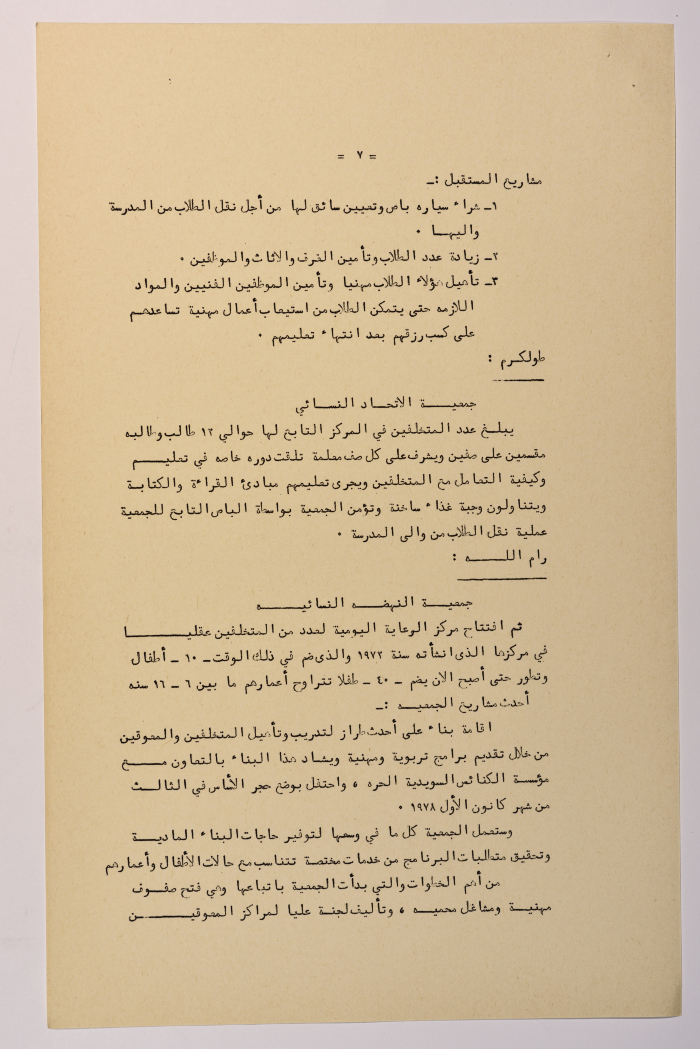 = ٧ =
مشاريع المستقبل :ـ
١ـ شراء سياره باص وتعيين سائق لها من أجل نقل الطلاب من المدرسة
واليهـا ٠
٢ـ زيادة عدد الطلاب وتأمين الغرف والاثاث والموظفين ٠
٣ـ تأهيل هؤلاء الطلاب مهنيا وتأمين الموظفين الفنيين والمواد
اللازمه حتى يتمكن الطلاب من استيعاب أعمال مهنية تساعدهم
على كسب رزقهم بعد انتهاء تعليمهم ٠
طولكرم :
جمعيــــة الاتحـاد النسـائي
يبلـغ عدد المتخلفين في المركز التابع لها حوالي ١٢ طالب وطالبه
مقسمين على صفين ويشرف على كل صف معلمة تلقت دوره خاصه في تعليـــم
وكيفية التعامل مع المتخلفين ويجرى تعليمهم مبادئ القراءة والكتابة
ويتناولون وجبة غذاء ساخنة وتؤمن الجمعية بواسطة الباص التابع للجمعية
عملية نقل الطلاب من والى المدرسة ٠
رام اللــــه :
جمعيـــة النهضـه النسائيـــه
تم افتتاح مركز الرعاية اليومية لعدد من المتخلفين عقليـــــا
في مركزها الذى انشأته سنة ١٩٧٢ والذى ضم في ذلك الوقت ـ ١٠ ـ أطفال
وتطور حتى أصبح الان يضم ـ ٤٠ ـ طفلا تتراوح أعمارهم ما بين ٦ ـ ١٦ سنه
أحدث مشاريع الجمعيـه :ـ
اقامة بناء على أحدث طراز لتدريب وتأهيل المتخلفين والمعوقين
من خلال تقديم برامج تربوية ومهنية ويشاد هذا البناء بالتعاون مـــع
مؤسسة الكنائس السويدية الحره ، واحتفل بوضع حجر الأساس في الثالــث
من شهر كانون الأول ١٩٧٨ ٠
وستعمل الجمعية كل ما في وسعها لتوفير حاجات البناء الماديــة
وتحقيق متطلبات البرنامج من خدمات مختصة تتناسب مع حالات الأطفال وأعمارهم
من أهم الخطوات والتي بدأت الجمعية باتباعها وهي فتح صفــوف
مهنية ومشاغل محميـه ، وتأليف لجنة عليا لمراكز المعوقيــــن